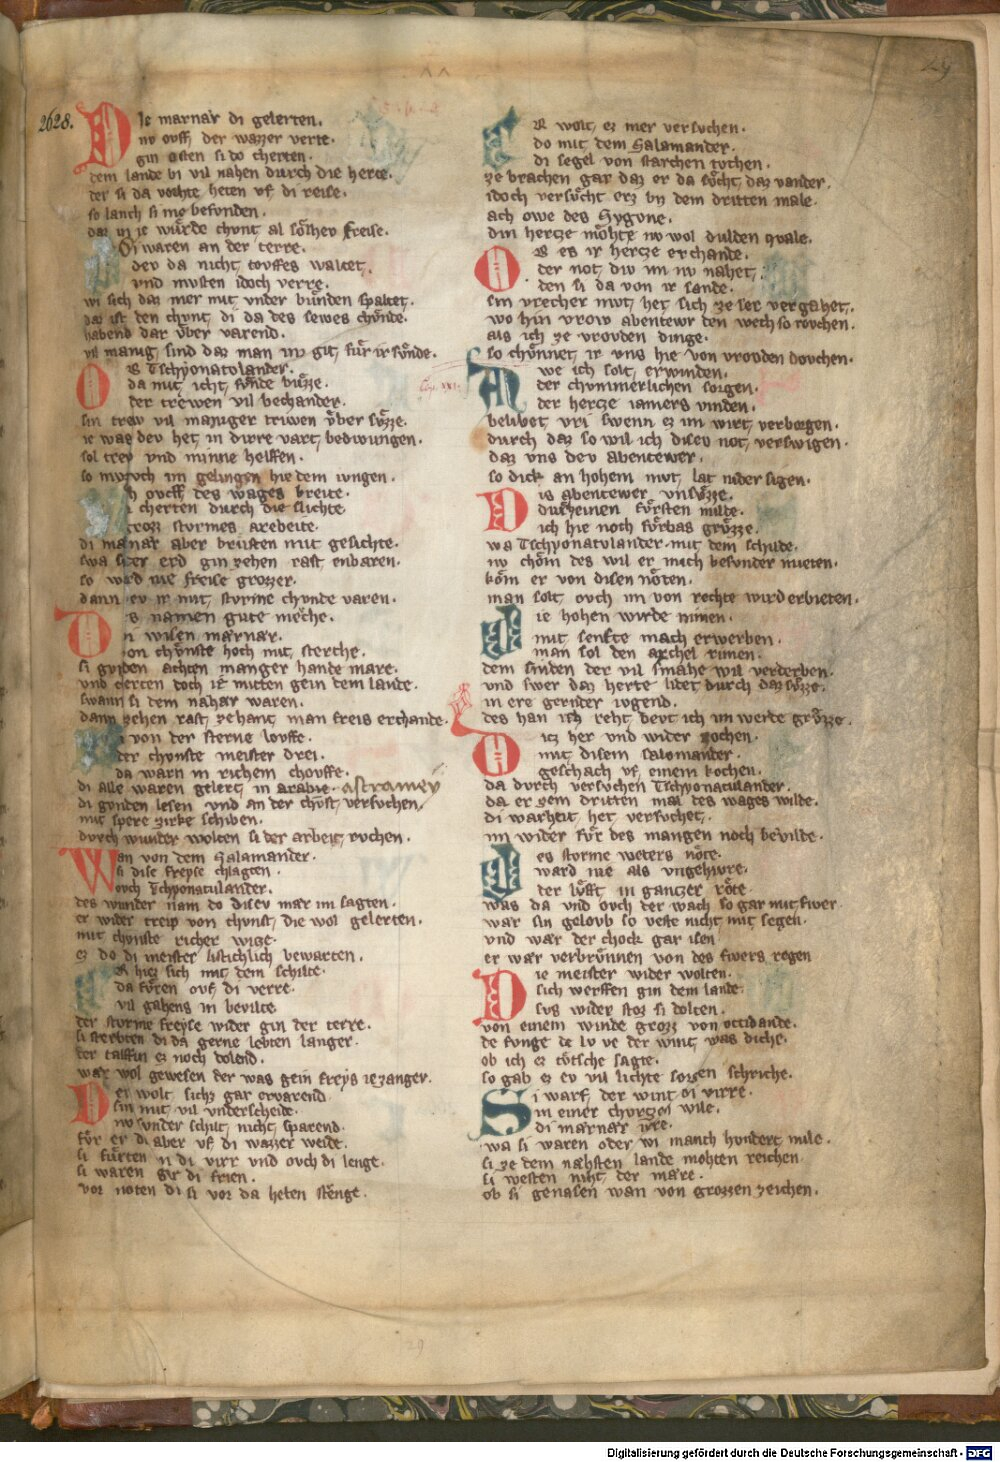 2628.
29
Die marnär di gelerten.
nv ovff der wazzer verte.
gin osten si do cherten.
dem lande bi vil nahen durch die herte.
der si da vochte heten vf di reise.
so lanch si me befvnden.
daz in ie würde chvnt al sölhev freise.
Di waren an der terre.
dev da nicht tovffes waltet.
vnd mvsten idoch verre.
wi sich daz mer mit vnder bünden spaltet.
daz ist den chvnt di da des sewes chönde.
habend dar vber varend.
vil manig sind daz man im git für ir sünde.
Ob Tschyonatolander.
da mit icht sünde büzze.
der trewen vil bechander.
sin trev vil maniger triwen vber süzze.
ie was dev het in dirre vart bedwungen.
sol trev vnd minne helffen.
so mvz ovch im gelingen hie dem ivngen.
ovcff des wages breite.
cherten durch die slichte
grozz stvrmes arebeite.
di marnär aber brüsten mit gesichte.
swa si der erd gin zehen rast enbaren.
so wird nie freise grozzer.
dann ev ir mit stvrme chvnde varen.
Des namen gute meche.
n wisen marnär.
von chünste hoch mit sterche.
si gvnden achten manger hande mare.
vnd cherten doch ie mitten gein dem lande.
swann si dem nahar waren.
dann zehen rast zehant man freis erchande.
von der sterne lovffe.
der chvnste meister drei.
da warn in richem chovffe.
di alle waren gelert in arabie. astromey
di gvnden lesen vnd an der chvst versuchen
mit spere zirke schiben.
durch wunder wolten si der arbeit ruchen.
Wan von dem Salamander.
si dise freyse chlagten.
ovch Tschyonatulander.
des wunder nam do disev mär im sagten.
er wider treip von chvnst die wol gelerten.
mit chvnste richer wize.
ez do di meister listichlich bewarten.
Er hiez sich mit dem schilte.
da füren ovf di verre.
vil gahens in bevilte
der stvrme freyse wider gin der terre.
si sterbten di da gerne lebten langer.
der talffin ez noch dolend.
war wol gewesen der was gein freys ie zanger.
Der wolt sichz gar ervarend
sin mit vil vnderscheide.
nv svnder schilt nicht sparend.
für er di aber vf di wazzer weide.
si fürten in di virr vnd ovch di lenge.
si waren gir di frien.
vor noten di si vor da heten stenge.
Er wolt ez mer versuchen.
do mit dem Salamander.
di segel von starchen tvchen.
ze brachen gar daz er da söcht daz vander.
idoch versücht erz by dem dritten male.
ach owe des Sygvne.
din hertze möhte nv wol dulden quale.
Ob es ir hertze erchande.
der not div im nv nahet.
den si da von ir sande.
sin vrecher mvt het sich ze ser vergahet.
wo hin vrow abentewr den wech so rovchen.
als ich ze vrovden dinge.
so chönnet ir vns hie von vrovden dovchen.
Awe ich solt erwinden.
der chvmmerlichen sorgen.
der hertze iamers vinden.
belibet vri swenn ez im wirt verborgen.
durch daz so wil ich disev not verswigen.
daz vns dev abentewer.
so dick an hohem mvt lat nider sigen.
Dis abentewer vnsüzze.
duscheinen fürsten milde.
ich hie noch fürbas grüzze.
wa Tschyonatvlander mit dem schilde.
nv chöm des wil er mich besvnder mieten.
köm er von disen nöten.
man solt ovch im von rechte wird erbieten.
Die hohen wirde nimen.
mit senfte mach erwerben.
man sol den achsel rimen.
dem sinden der vil smahe wil verderben.
vnd swer daz herte lidet durch daz süzze.
in ere gernder ivgend.
des han ich reht devt ich im werde grüzze.
Ditz her vnd wider zochen.
mit disem salomander.
geschach vf einem kochen.
da durch versuchen Tschyonatulander.
da er zem dritten mal des wages wilde.
di warheit het versuchet.
im wider für des mangen noch bevilde.
Des stvrme weters nöte.
ward nie als vngehivre.
der lüfft in gantzer röte.
was da vnd ovch der wach so gar mit fiwer.
wär sin gelovb so veste nicht mit segen.
vnd wär der chock gar isen
er wär verbrünnen von des fiwers regen
Die meister wider wolten.
sich werffen gin dem lande.
svs wider stoz si dolten.
von einem winde grozz von occidande.
de fvnge de lv ve der wint was diche.
ob ich ez tötsche sagte.
so gab ez ev vil lichte sorgen schriche.
Si warf der wint di virre.
in einer chvrtzoi wile.
di marnär irre.
wa si waren oder wi manch hvndert mile.
si ze dem nähsten lande mohten reichen.
si westen niht der märe.
ob si genasen wan von grozzen zeichen.
29
Digitalisierung gefördert durch die Deutsche Forschungsgemeinschaft - DFG